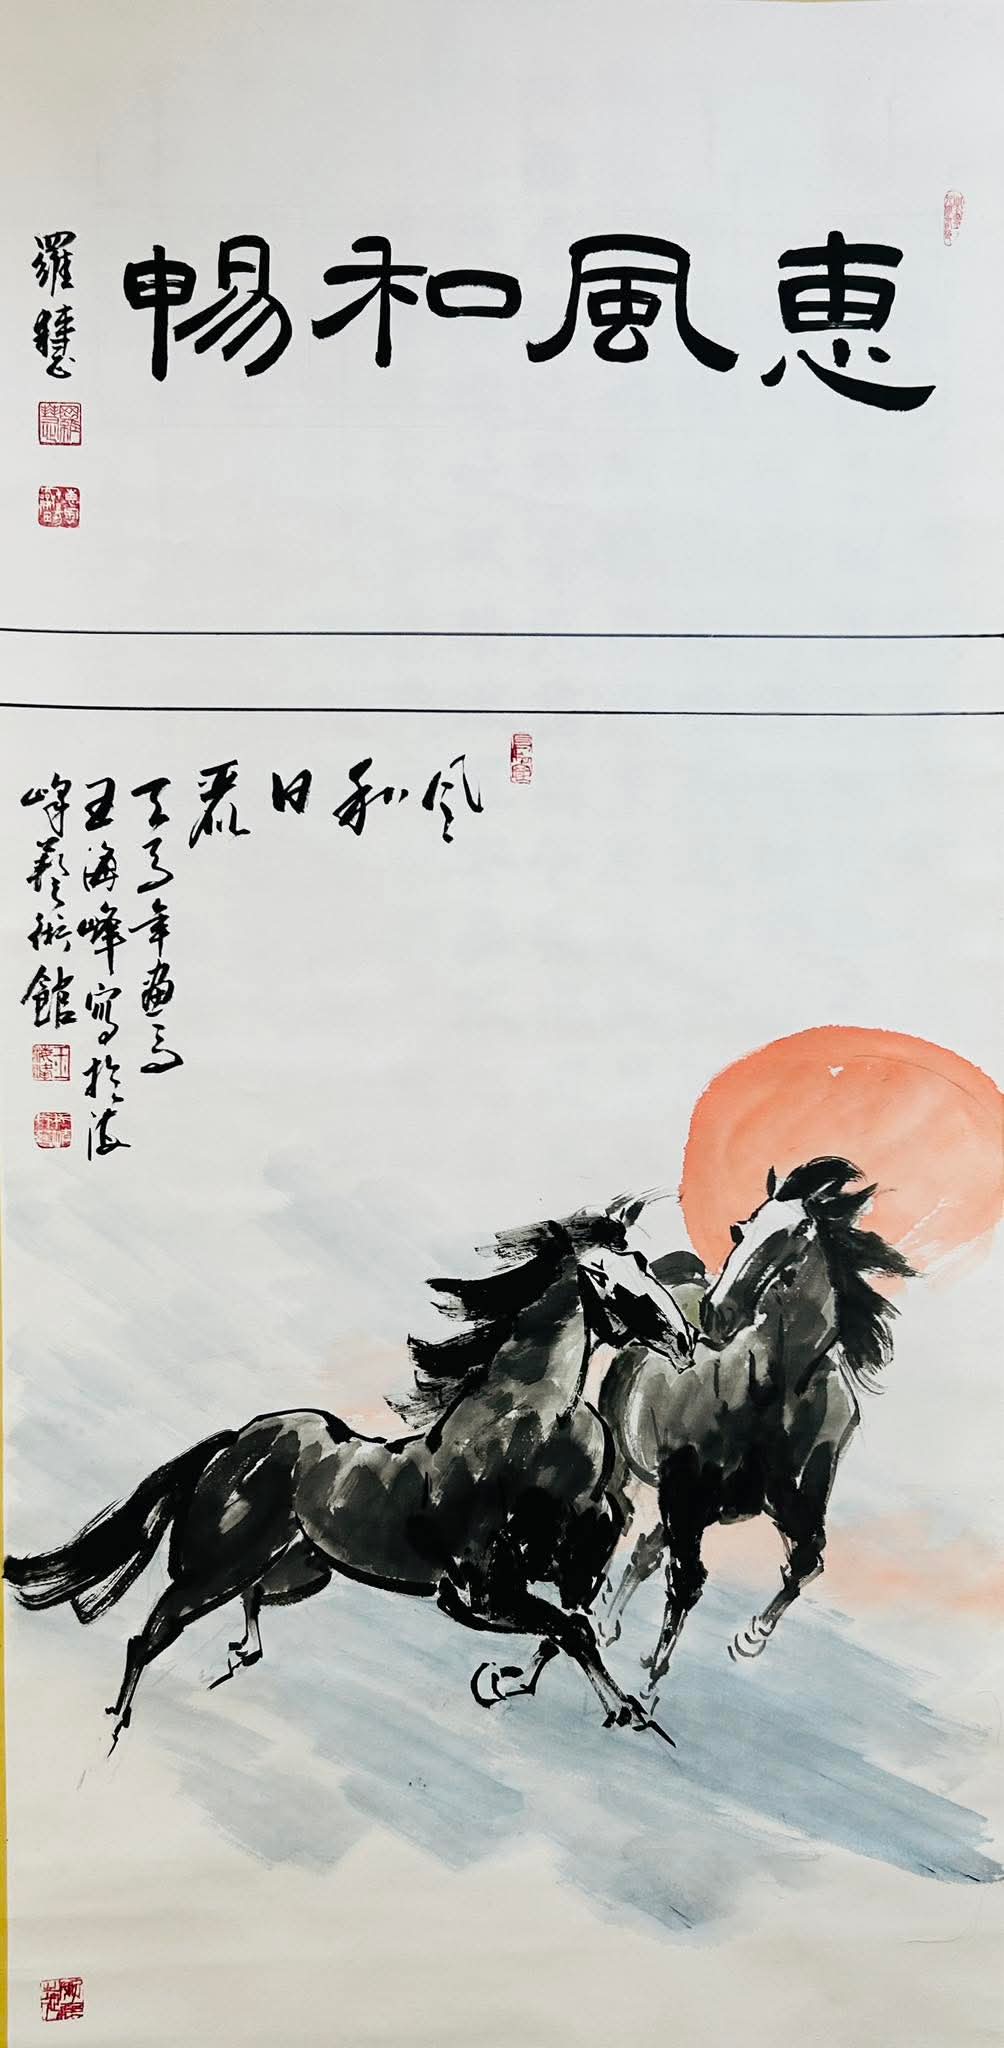 惠風和暢
羅
风和日麗
天马年畫马
王海峰寫於海
峰藝術館